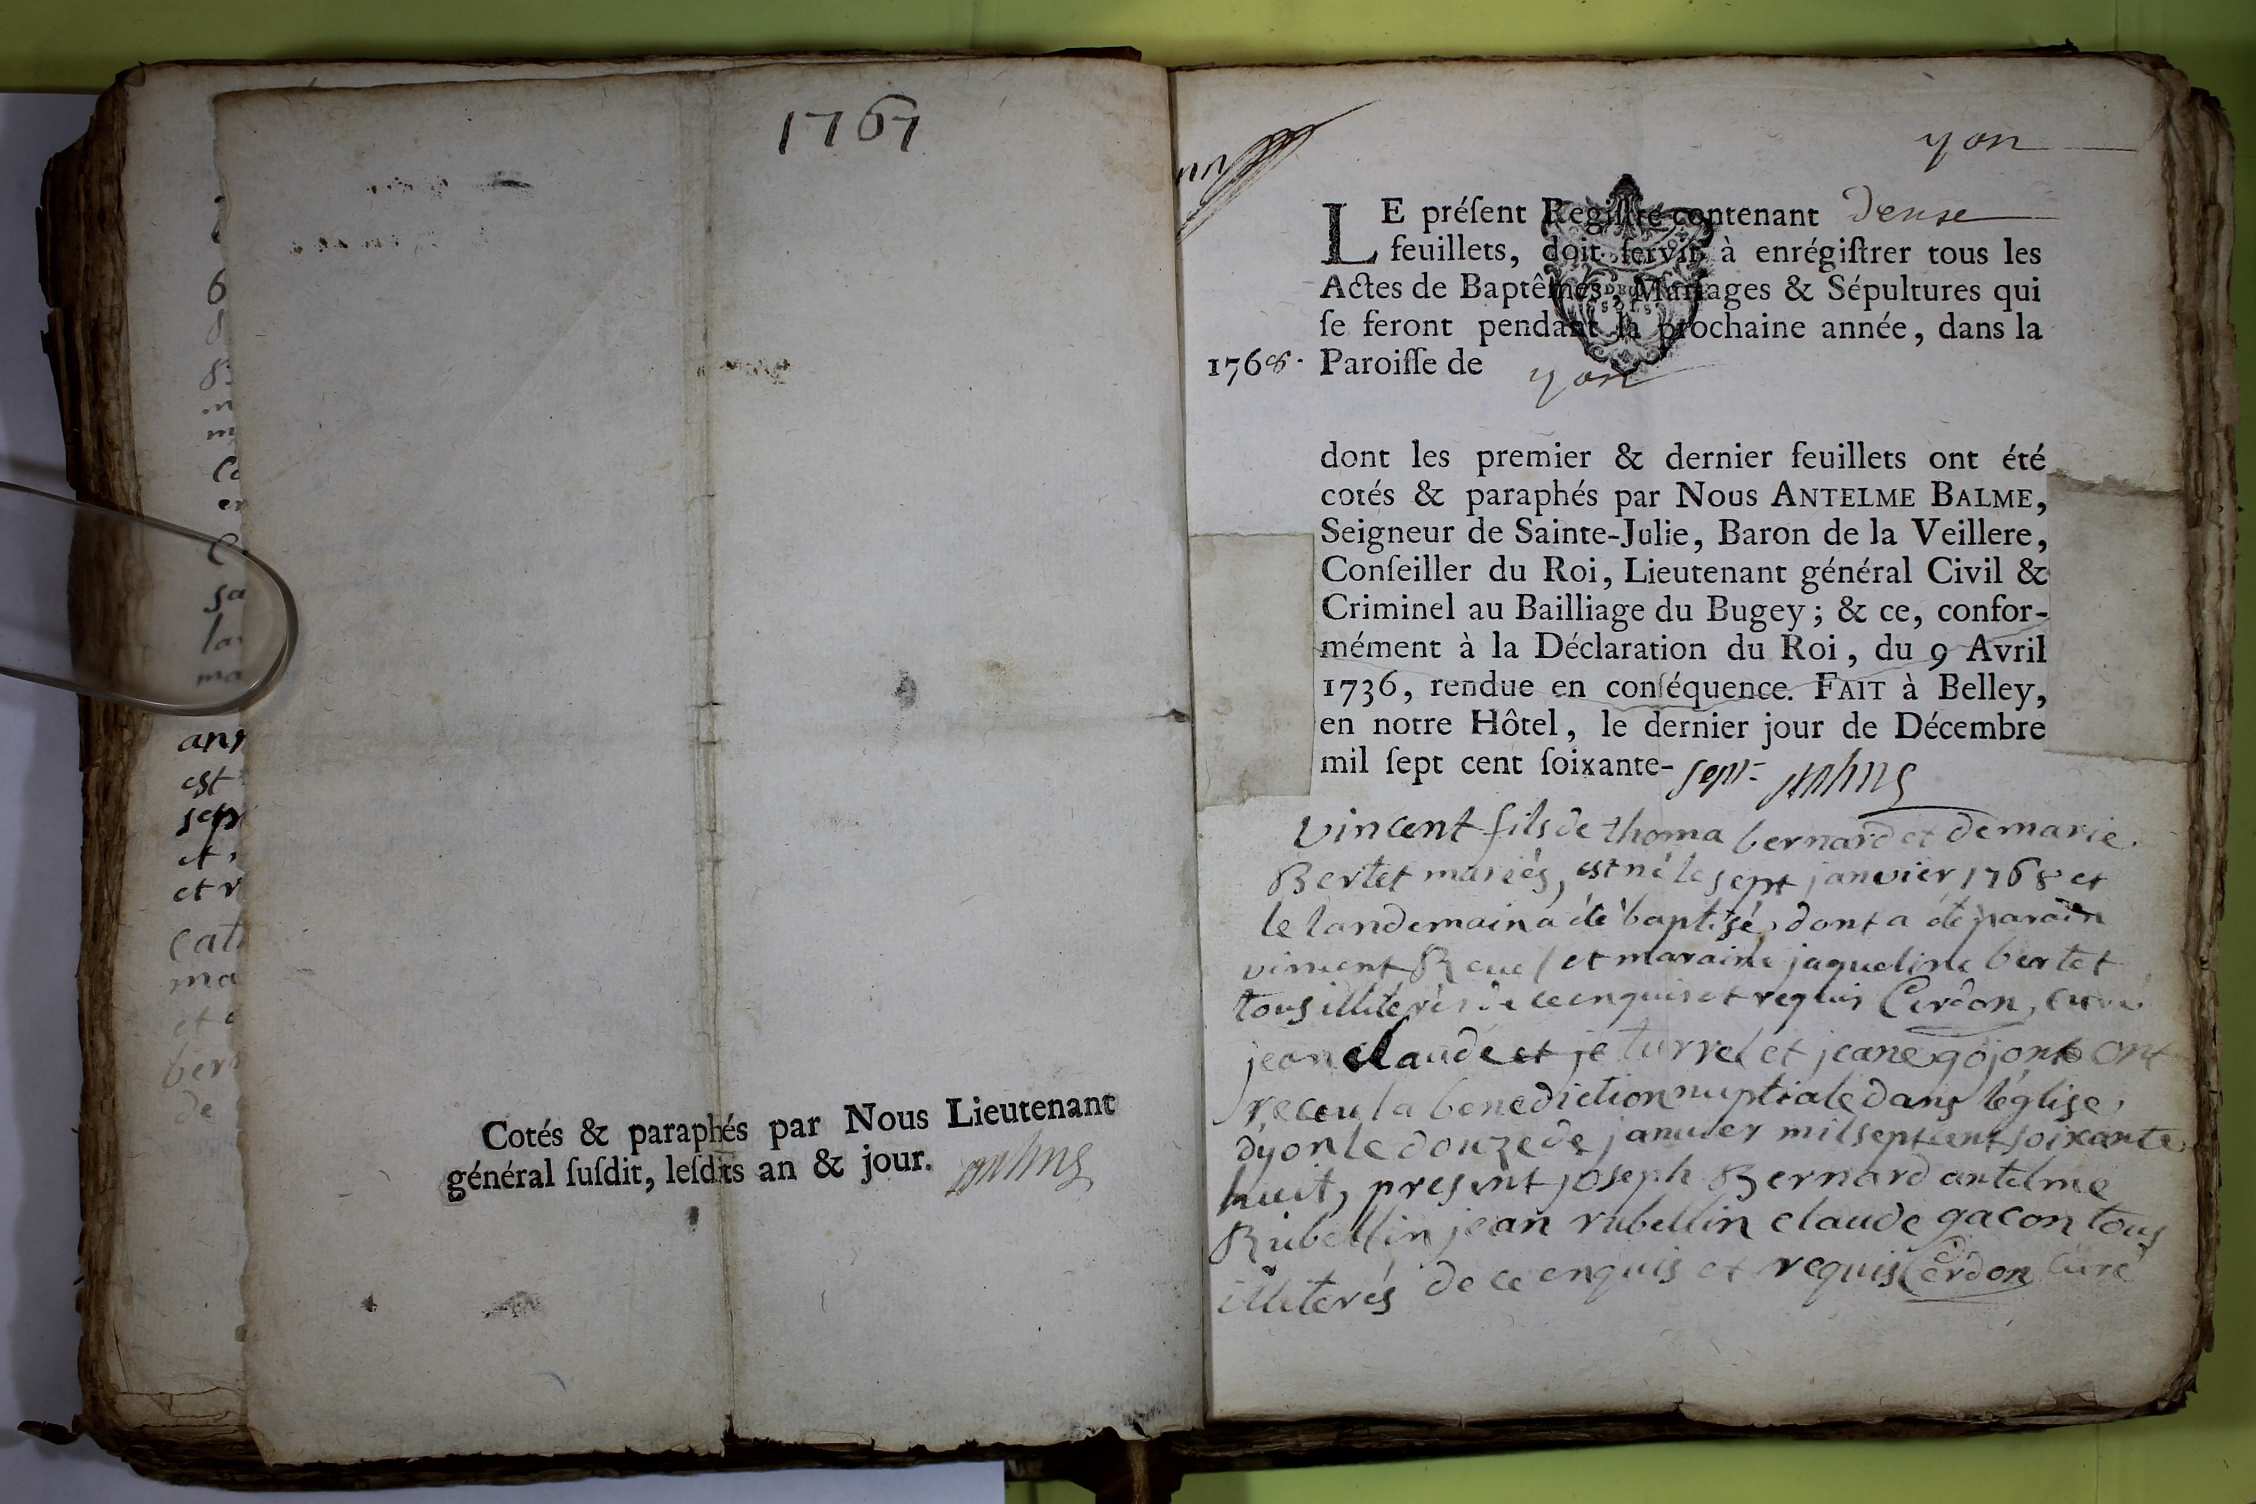 1767
6
8
m
en
sa
la
ma
est
et
et v
cat
ma
et
ber
de
Cotés & paraphés par Nous Lieutenant
général ſuſdit, leſdits an & jour.
yon
LE préſent Regiſtre contenant
feuillets, doit ſervir à enrégiſtrer tous les
Actes de Baptêmes, Mariages & Sépultures qui
ſe feront pendant la prochaine année, dans la
1768. Paroiſſe de yon
dont les premier & dernier feuillets ont été
cotés & paraphés par Nous ANTELME BALME,
Seigneur de Sainte-Julie, Baron de la Veillere,
Conſeiller du Roi, Lieutenant général Civil &
Criminel au Bailliage du Bugey; & ce, confor-
mément à la Déclaration du Roi, du 9 Avril
1736, rendue en conſéquence. FAIT à Belley,
en notre Hôtel, le dernier jour de Décembre
mil ſept cent ſoixante- sept
vincent fils de thoma bernard et de marie
Bertet mariés, est né le sept janvier 1768 et
le landemain a été baptisé, dont a été parain
vincent et maraine jaqueline bertet
tous illiterés de ce enquis et requis Cerdon, curé
jean claude et je turrel et jeane gojont ont
receu la benediction nuptiale dans léglise
dyon le douze de janvier mil sept cent soixante
huit, present joseph Bernard antelme
Rubellin jean rubellin claude gacon tous
illiterés de ce enquis et requis Cerdon curé